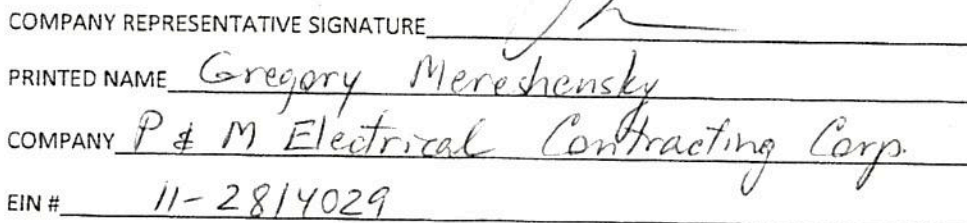 COMPANY REPRESENTATIVE SIGNATURE
PRINTED NAME Gregory Mereshensky
COMPANY P & M Electrical Contracting Corp.
EIN # 11-2814029